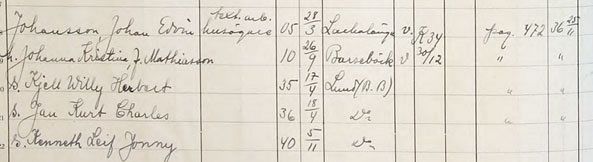 text.arb.
Johansson, Johan Edvin husägare 05 28/3 Lackalänga v. K 34 pag. 472 36 25/11
h. Johanna Kristina f. Mathiasson 10 26/9 Barsebäck v 30/12 " "
s. Kjell Willy Herbert 35 17/4 Lund (B.B) " "
s. Jan Kurt Charles 36 18/4 Do " "
s. Kenneth Leif Jonny 40 5/11 Do